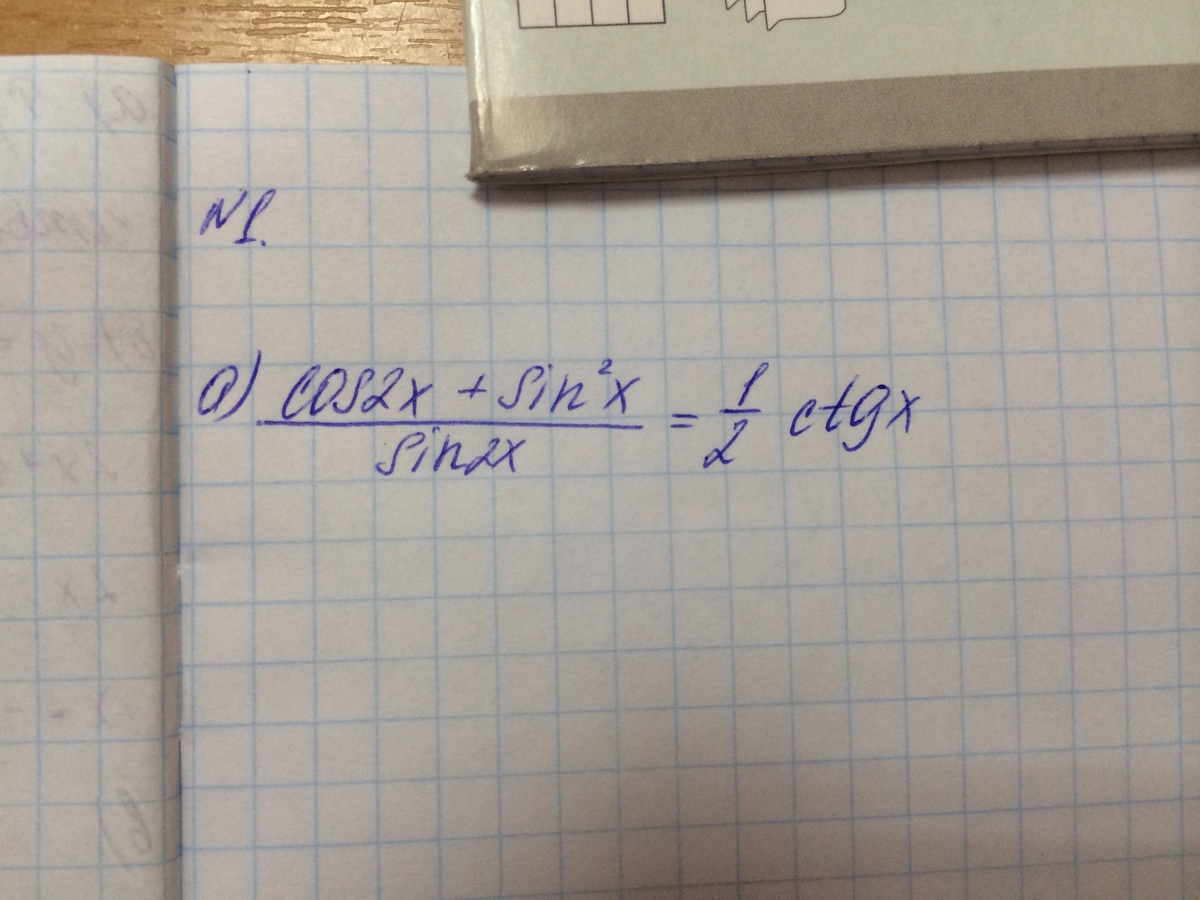 N1.
a) (cos2x + sin²x)/sin2x = 1/2 ctgx